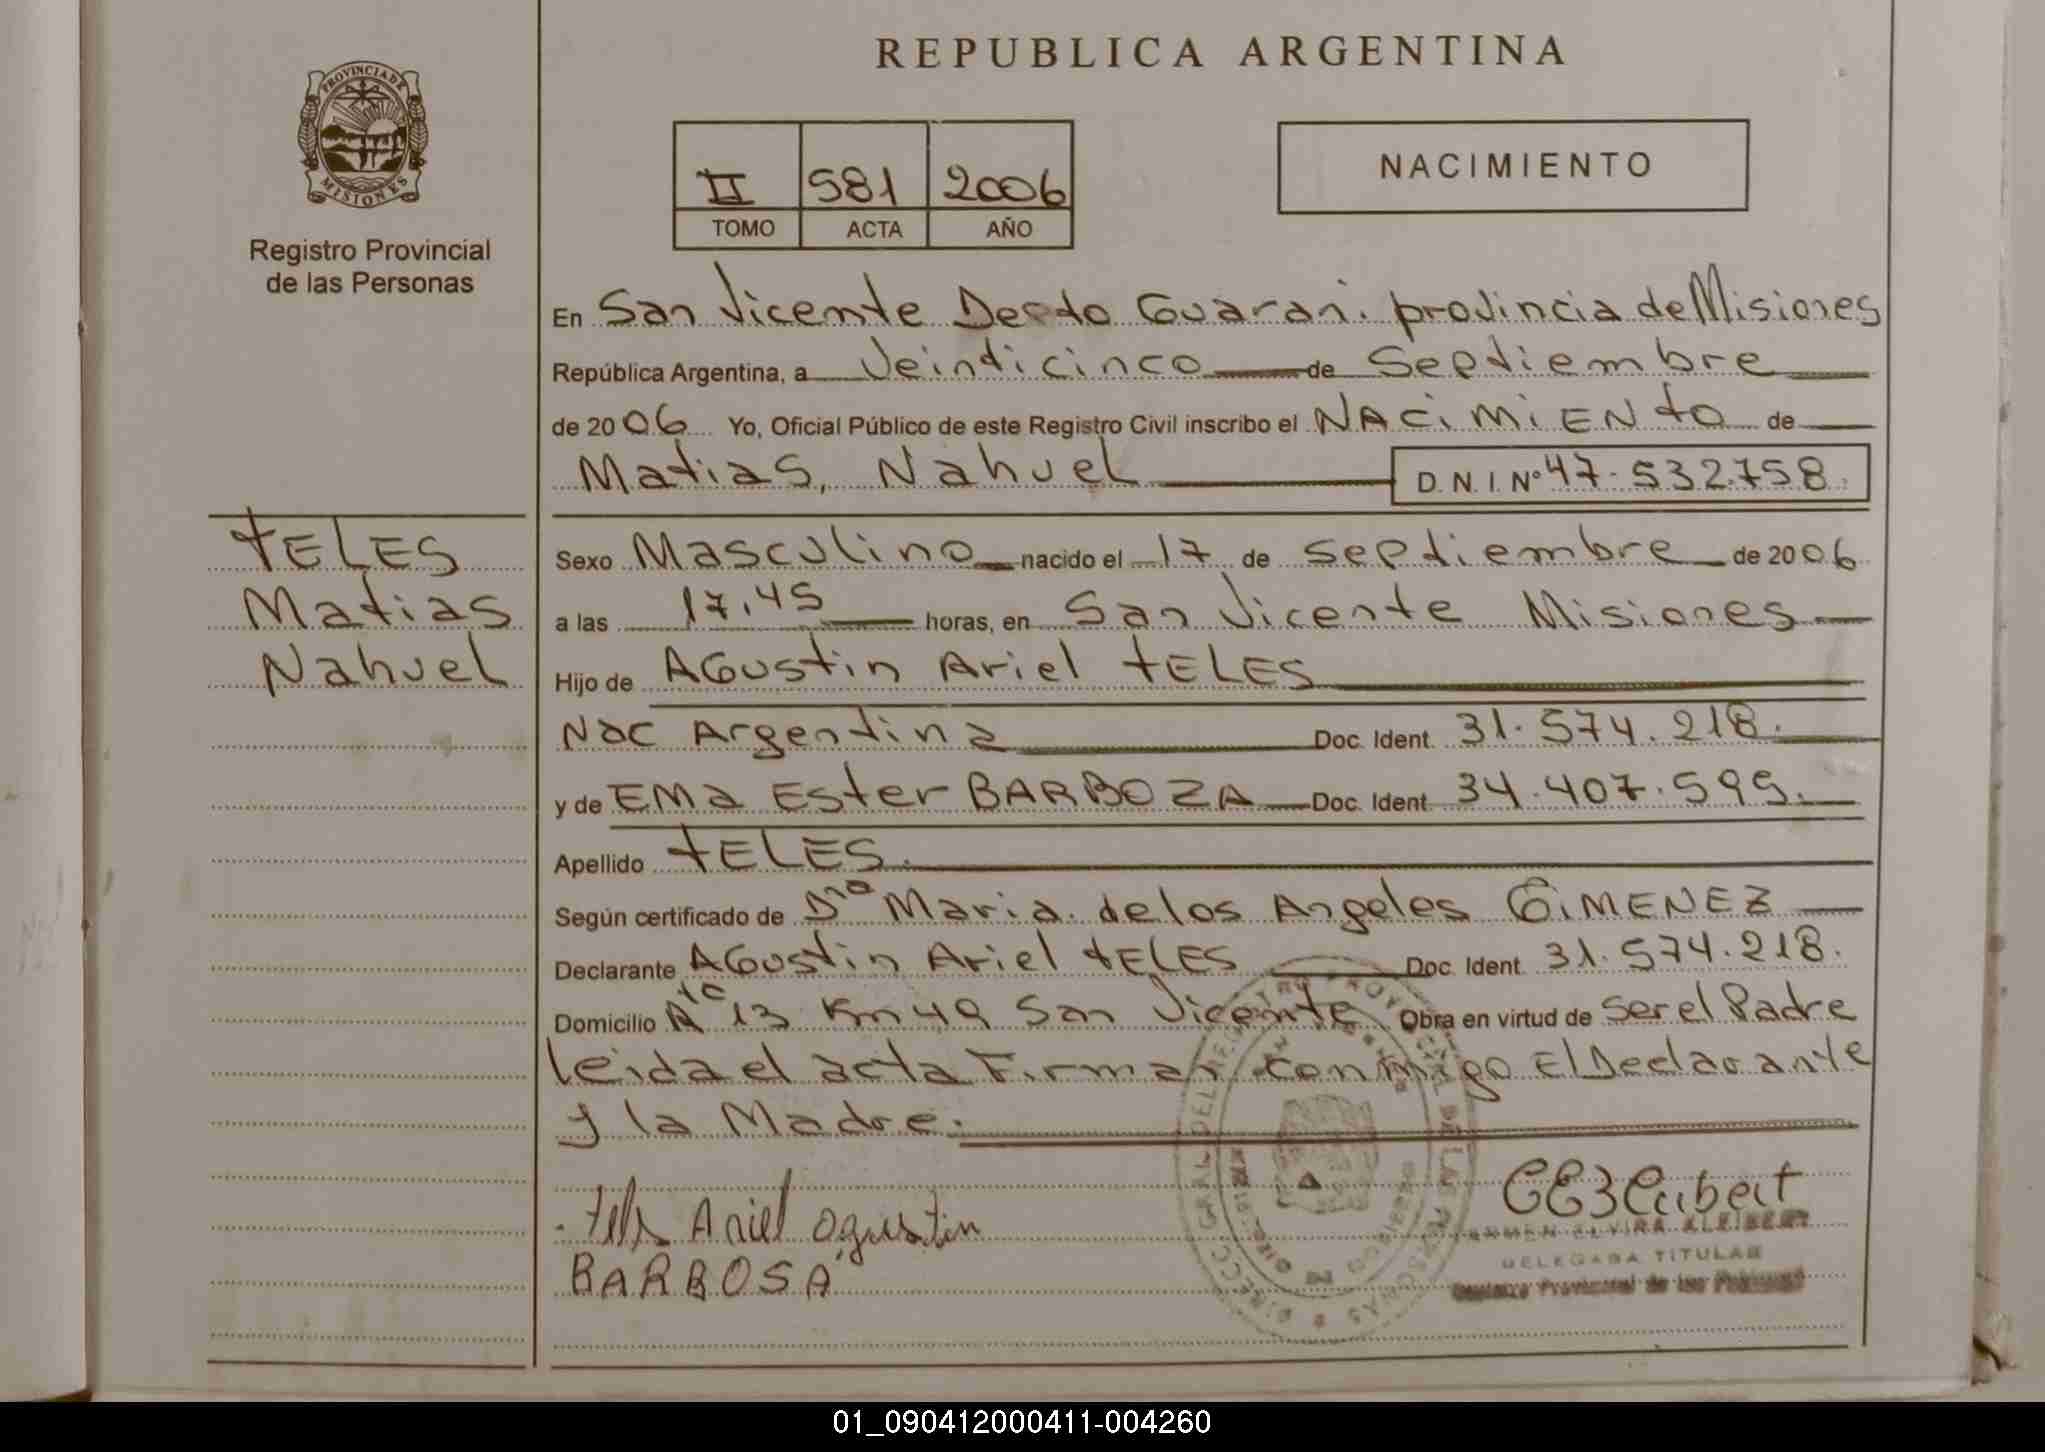 REPUBLICA ARGENTINA
PROVINCIA DE
MISIONES
Registro Provincial
de las Personas
II 581 2006
TOMO ACTA AÑO
NACIMIENTO
En San Vicente Depto Guarani. provincia de Misiones
República Argentina, a Veinticinco de Septiembre
de 2006 Yo, Oficial Público de este Registro Civil inscribo el NACiMiENtO de
Matias, Nahuel D.N.I. Nº 47.532.758
tELES
Matias
Nahuel
Sexo Masculino nacido el 17 de Septiembre de 2006
a las 17,45 horas, en San Vicente Misiones
Hijo de AGustin Ariel tELES
Nac Argentina Doc. Ident. 31.574.218.
y de EMa Ester BARBOZA Doc. Ident. 34.407.595.
Apellido tELES.
Según certificado de Dra Maria de los Angeles GiMENEZ
Declarante AGustin Ariel tELES Doc. Ident. 31.574.218.
Domicilio 13 Km 49 San Vicente Obra en virtud de Ser el Padre
leida el acta Firman conmigo El Declarante
y la Madre.
Ariel agustin
BARBOSA
DELEGADA TITULAR
Registro Provincial de las Personas
01_090412000411-004260